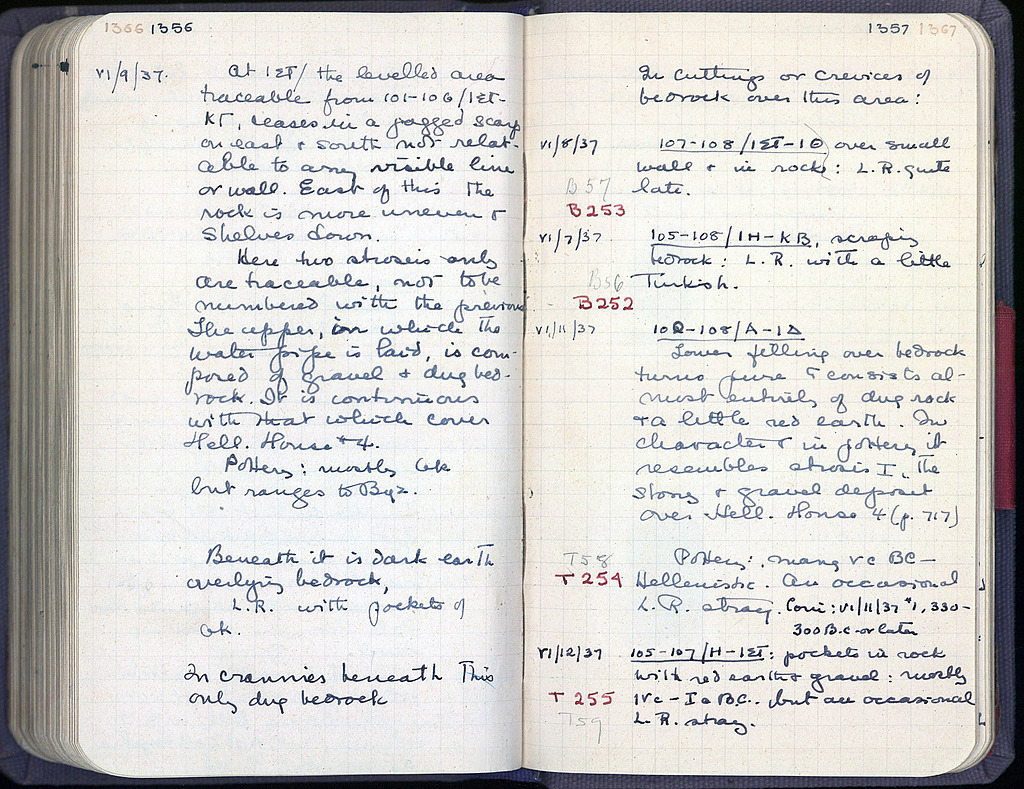 1366 1356
VI/9/37. At 1ΣΤ/ the levelled area
traceable from 101-106/1ΣΤ-
ΚΓ, ceases in a jagged scarp
on east & south not relat-
able to any visible line
or wall. East of this the
rock is more uneven &
shelves down.
Here two stroseis only
are traceable, not to be
numbered with the previous.
The upper, in which the
water pipe is laid, is com-
posed of gravel & dug bed-
rock. It is continuous
with that which cover
Hell. House #4.
Pottery: mostly Gk
but ranges to Byz.
Beneath it is dark earth
overlying bedrock,
L.R. with pockets of
Gk.
In crannies beneath this
only dug bedrock
1357 1367
In cuttings or crevices of
bedrock over this area:
VI/8/37 107-108/1ΣΤ-1Θ over small
wall & in rock: L.R. quite
B57 late.
B253
VI/7/37 105-108/1H-KB, scraping
bedrock: L.R. with a little
B56 Turkish.
B252
VI/11/37 102-108/A-1Δ
Lower filling over bedrock
turns pure & consists al-
most entirely of dug rock
& a little red earth. In
character & in pottery it
resembles strosis I, the
stony & gravel deposit
over Hell. House 4 (p. 717)
T58 Pottery: many Vc BC-
T 254 Hellenistic. An occasional
L.R. stray. Coin: VI/11/37 #1, 330-
300 B.C. or later
VI/12/37 105-107/H-1ΣΤ: pockets in rock
with red earth & gravel: mostly
T 255 IVc-Ic B.C. but an occasional
T59 L.R. stray.